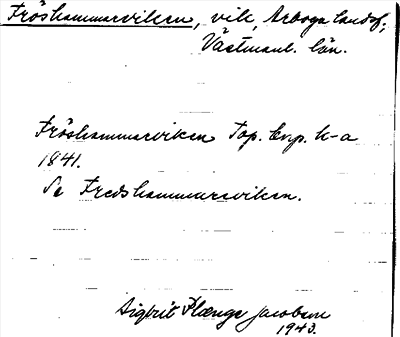 Fröshammarviken, vik, Arboga landsf.;
Västmanl. län.
Fröshammarviken Top. Corp. k-a
1841.
Se Fredshammarsviken.
Sigbrit Plænge Jacobson
1943.